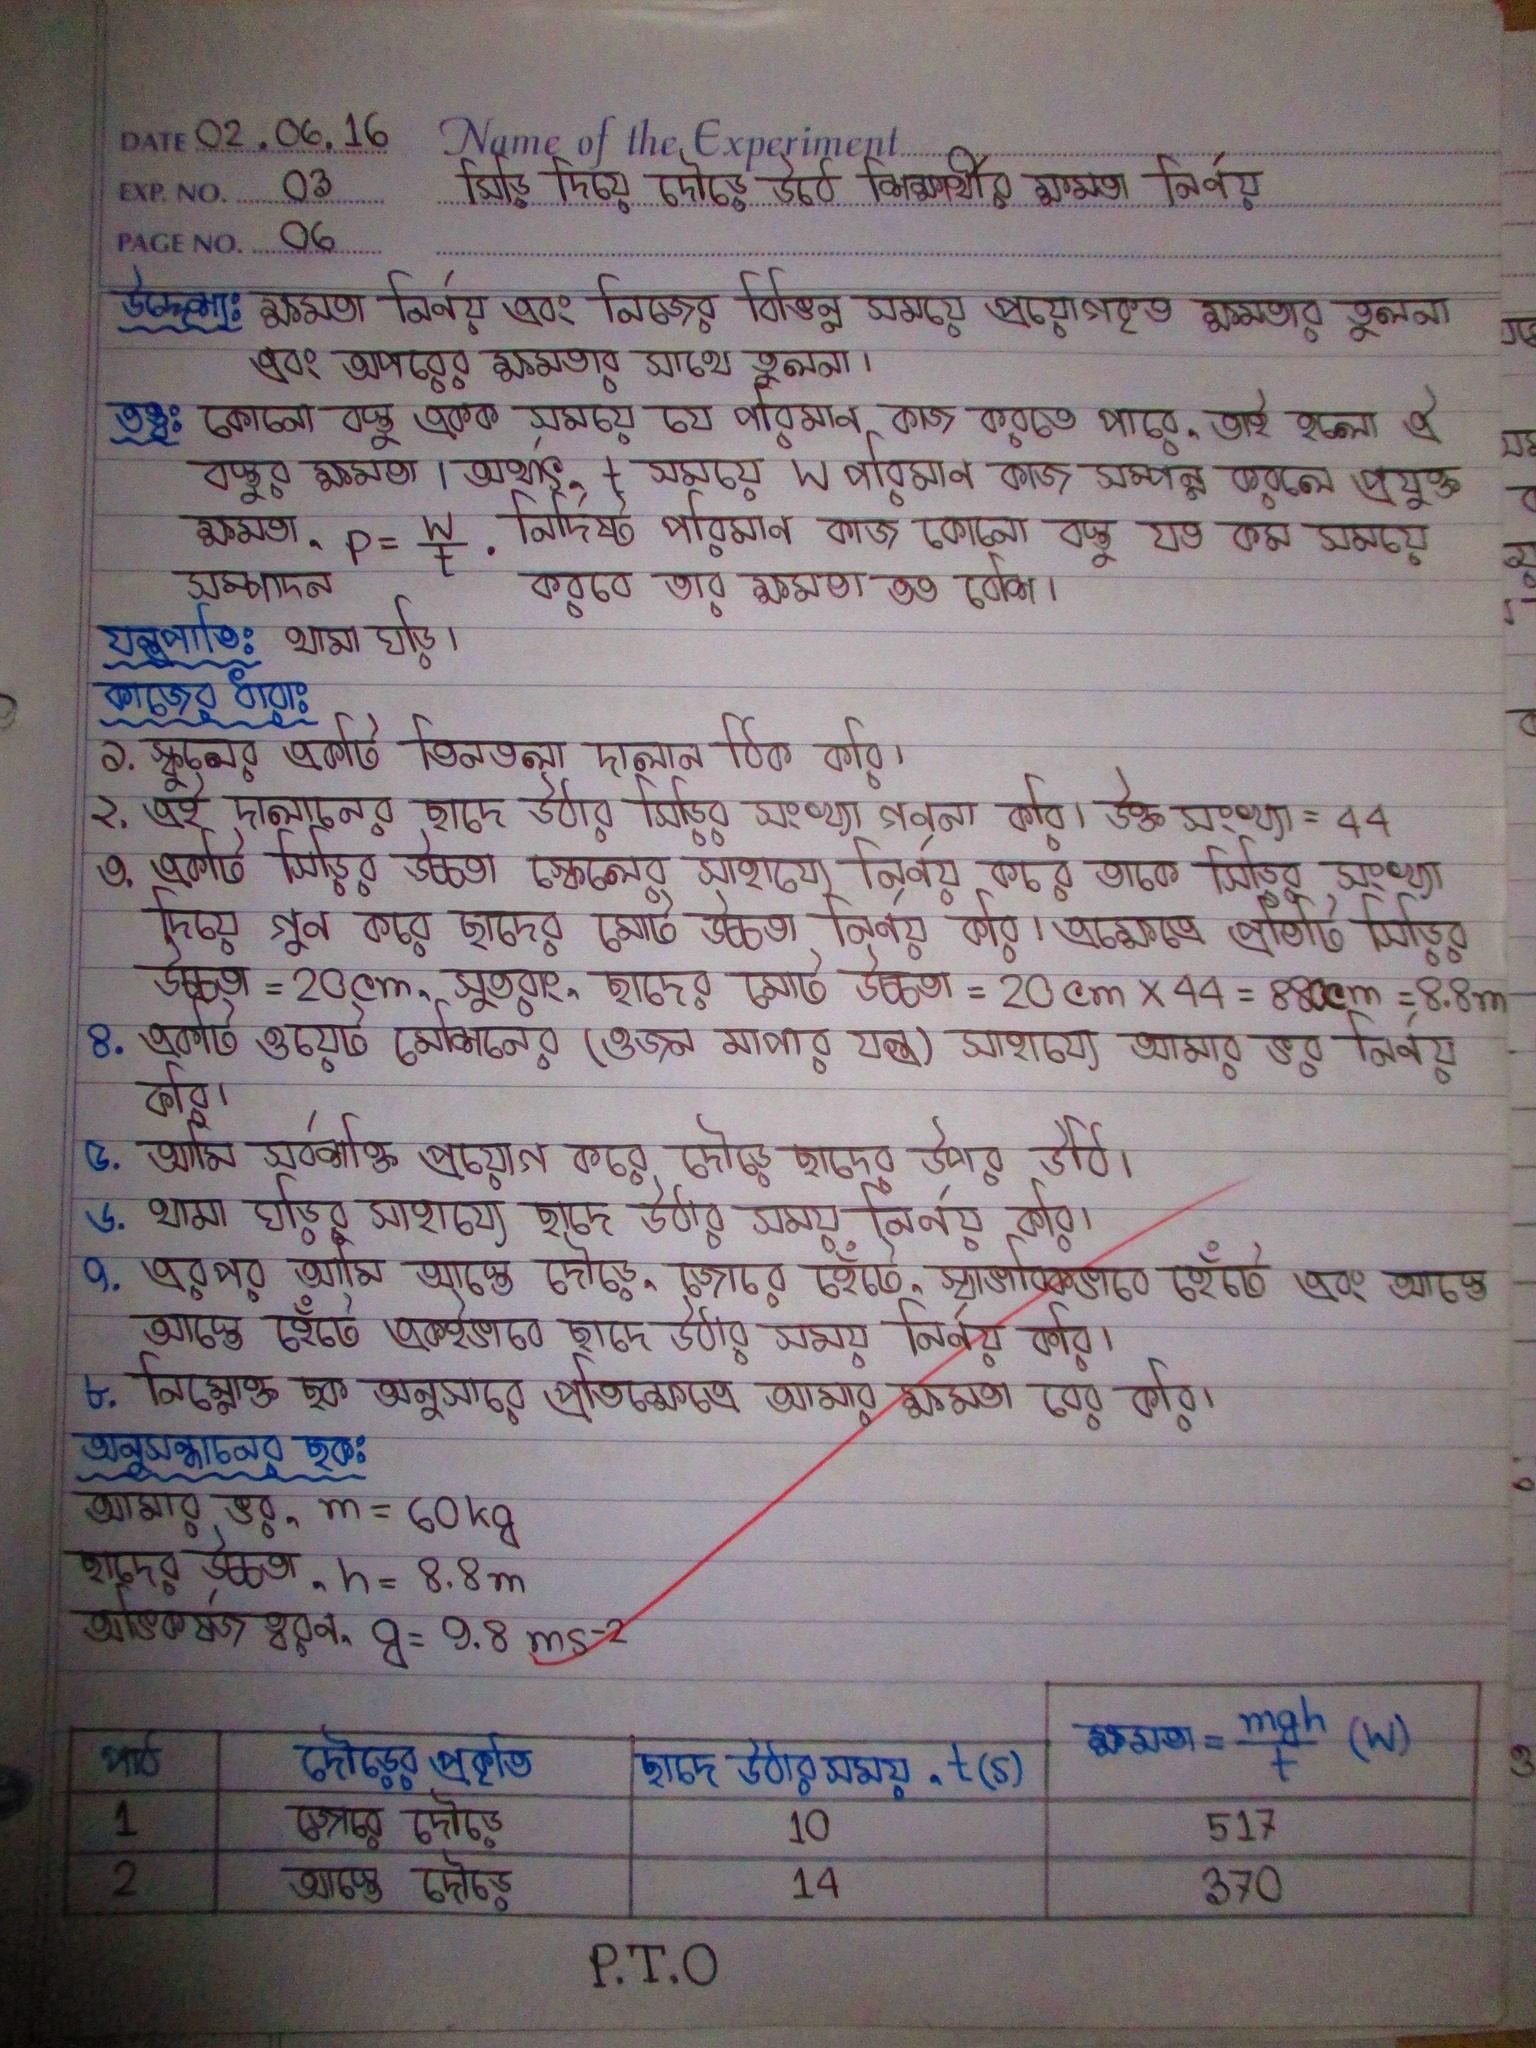 DATE 02.06.16 Name of the Experiment
EXP. NO. 03 সিঁড়ি দিয়ে দৌড়ে উঠে শিক্ষার্থীর ক্ষমতা নির্ণয়
PAGE NO. 06
উদ্দেশ্যঃ ক্ষমতা নির্ণয় এবং নিজের বিভিন্ন সময়ে প্রয়োগকৃত ক্ষমতার তুলনা
এবং অপরের ক্ষমতার সাথে তুলনা।
তত্ত্বঃ কোনো বস্তু একক সময়ে যে পরিমান কাজ করতে পারে, তাই হলো ঐ
বস্তুর ক্ষমতা। অর্থাৎ, t সময়ে W পরিমান কাজ সম্পন্ন করলে প্রযুক্ত
ক্ষমতা, P = W/t . নির্দিষ্ট পরিমান কাজ কোনো বস্তু যত কম সময়ে
সম্পাদন করবে তার ক্ষমতা তত বেশি।
যন্ত্রপাতিঃ থামা ঘড়ি।
কাজের ধারাঃ
১. স্কুলের একটি তিনতলা দালান ঠিক করি।
২. এই দালানের ছাদে উঠার সিঁড়ির সংখ্যা গণনা করি। উক্ত সংখ্যা = 44
৩. একটি সিঁড়ির উচ্চতা স্কেলের সাহায্যে নির্ণয় করে তাকে সিঁড়ির সংখ্যা
দিয়ে গুন করে ছাদের মোট উচ্চতা নির্ণয় করি। এক্ষেত্রে প্রতিটি সিঁড়ির
উচ্চতা = 20cm, সুতরাং, ছাদের মোট উচ্চতা = 20cm X 44 = 880cm = 8.8m
৪. একটি ওয়েট মেশিনের (ওজন মাপার যন্ত্র) সাহায্যে আমার ভর নির্ণয়
করি।
৫. আমি সর্বশক্তি প্রয়োগ করে দৌড়ে ছাদের উপর উঠি।
৬. থামা ঘড়ির সাহায্যে ছাদে উঠার সময় নির্ণয় করি।
৭. এরপর আমি আস্তে দৌড়ে, জোরে হেঁটে, স্বাভাবিকভাবে হেঁটে এবং আস্তে
আস্তে হেঁটে একইভাবে ছাদে উঠার সময় নির্ণয় করি।
৮. নিম্নোক্ত ছক অনুসারে প্রতিক্ষেত্রে আমার ক্ষমতা বের করি।
অনুসন্ধানের ছকঃ
আমার ভর, m = 60kg
ছাদের উচ্চতা, h = 8.8m
অভিকর্ষজ ত্বরণ, g = 9.8 ms-2
পাঠ দৌড়ের প্রকৃতি ছাদে উঠার সময়, t(s) ক্ষমতা = mgh/t (W)
1 জোরে দৌড়ে 10 517
2 আস্তে দৌড়ে 14 370
P.T.O